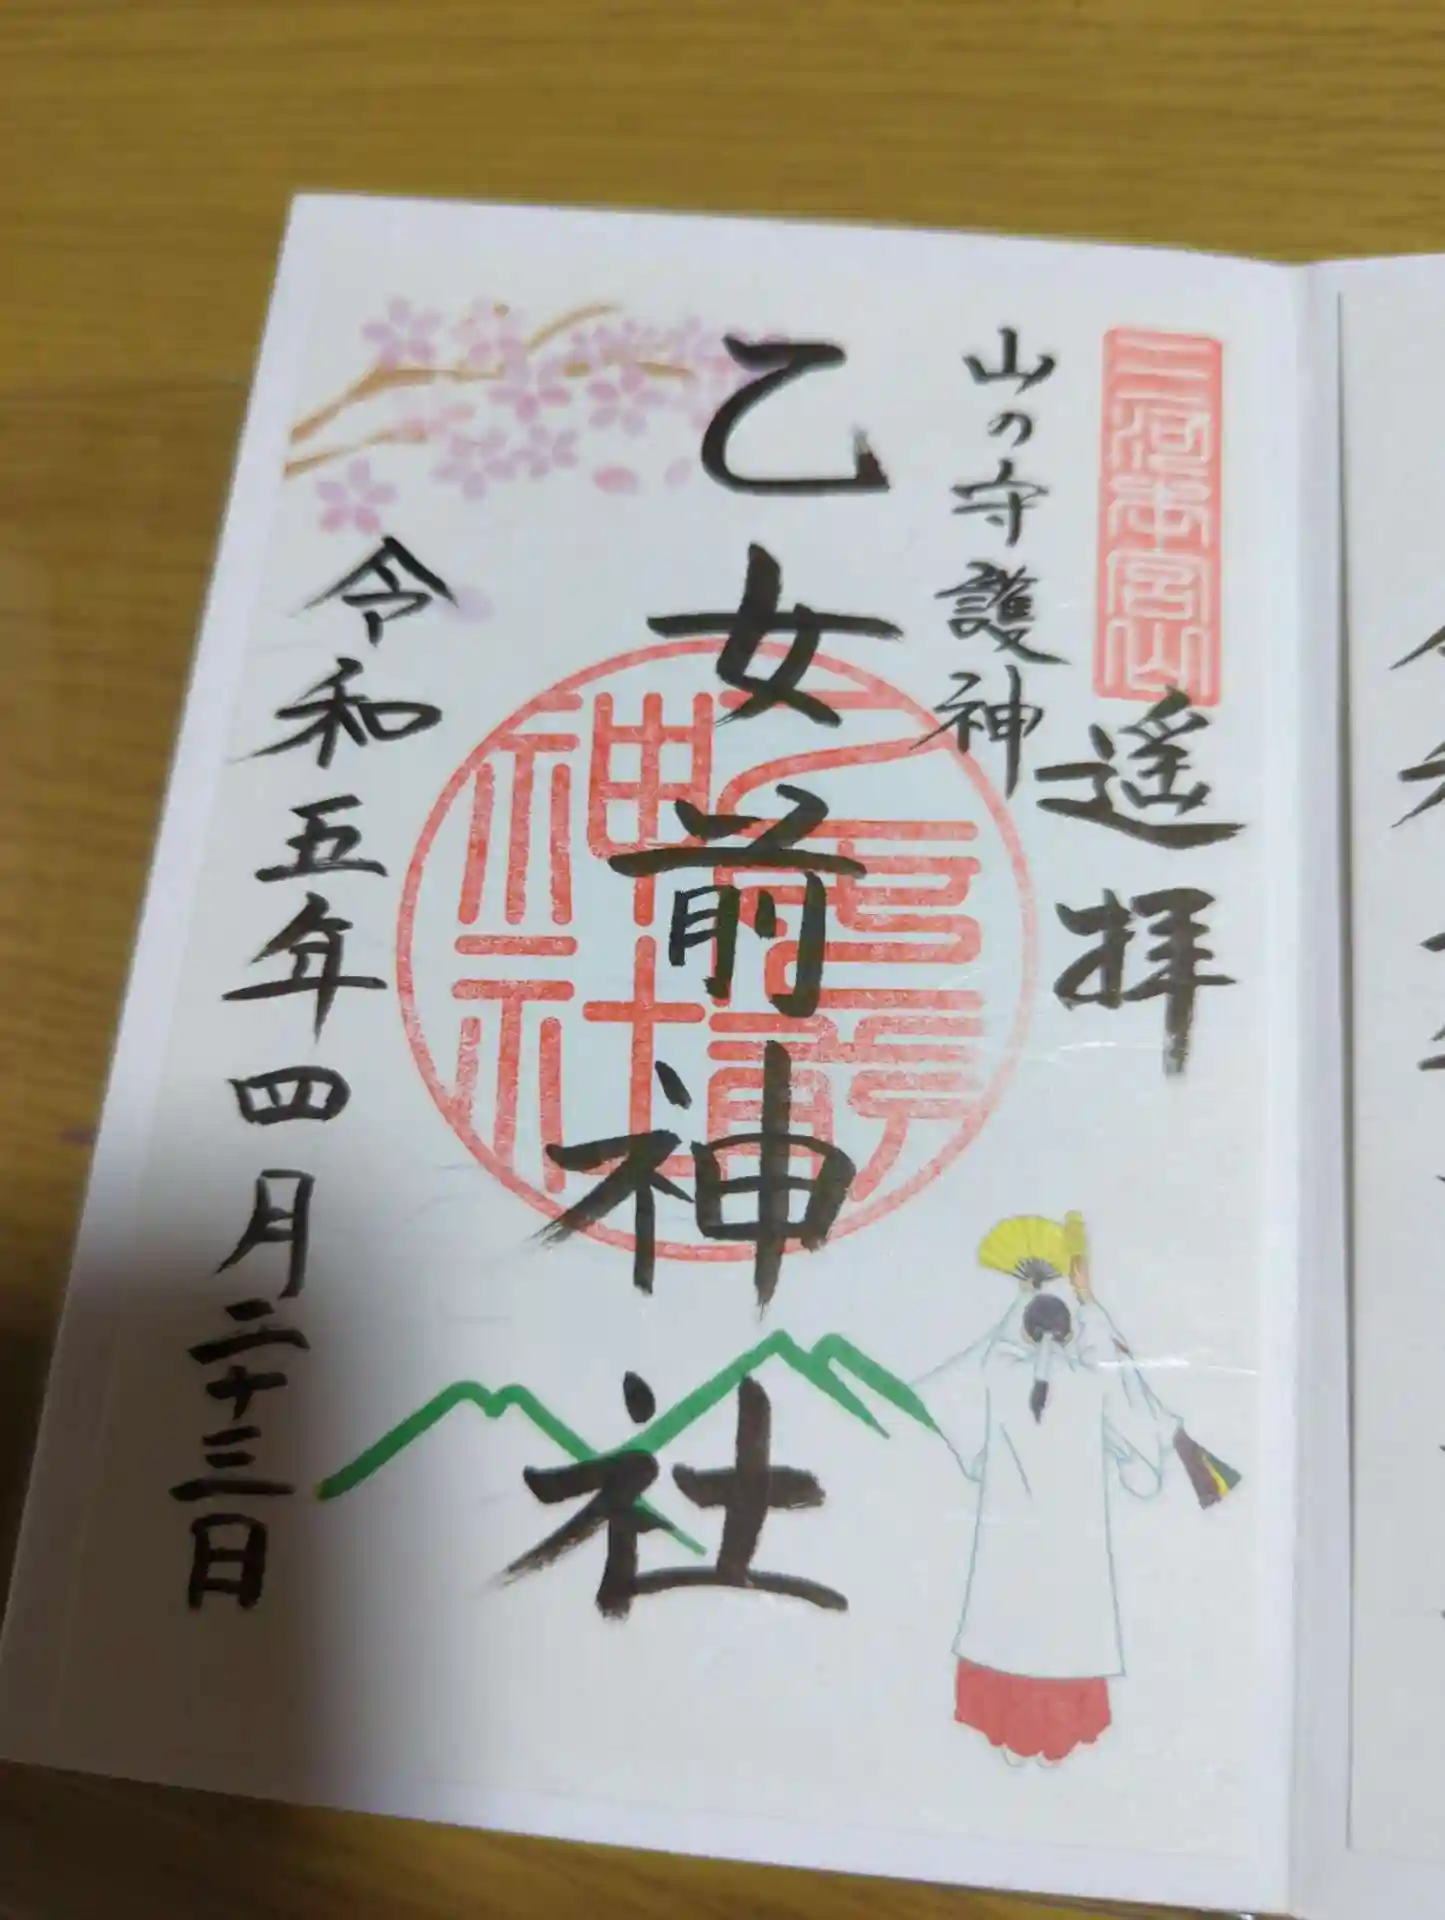 三河本宮山
遥拝
山の守護神
乙女前神社
乙女前
神社
令和五年四月二十三日